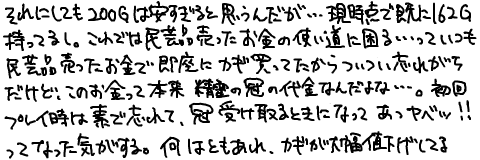 それにしても200Gは安すぎると思うんだが…現時点で既に162G
持ってるし。これでは民芸品売ったお金の使い道に困る…っていつも
民芸品売ったお金で即座にカギ買ってたからついつい忘れがち
だけど、このお金って本来 精霊の冠の代金なんだよな…。初回
プレイ時は素で忘れて、冠受け取るときになって あっヤベッ!!
ってなった気がする。何はともあれ、カギが大幅値下げしてる